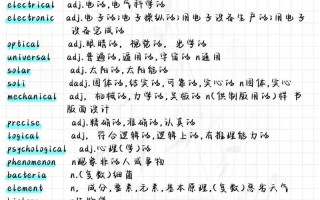 electrical adj.电的,电气科学的
electronic adj.电子的;电子操纵的;用电子设备生产的;用电子
设备完成的
optical adj.眼睛的, 视觉的, 光学的
universal adj.普遍的,通用的,宇宙的 n通用
solar adj.太阳的,太阳能的
soli dadj.固体的,结实的,可靠的,实心的 n固体,实心
mechanical adj, 机械的,力学的,呆板的 n(供制版用的)样书
版面设计
precise adj.精确的,准确的,认真的
logical adj, 符合逻辑的,逻辑上的,有推理能力的
psychological adj.心理(学)的
phenomenon n.现象非凡的人或事物
bacteria n.(复数)细菌
element n, 成分,要素,元素,基本原理,(复数)恶劣天气